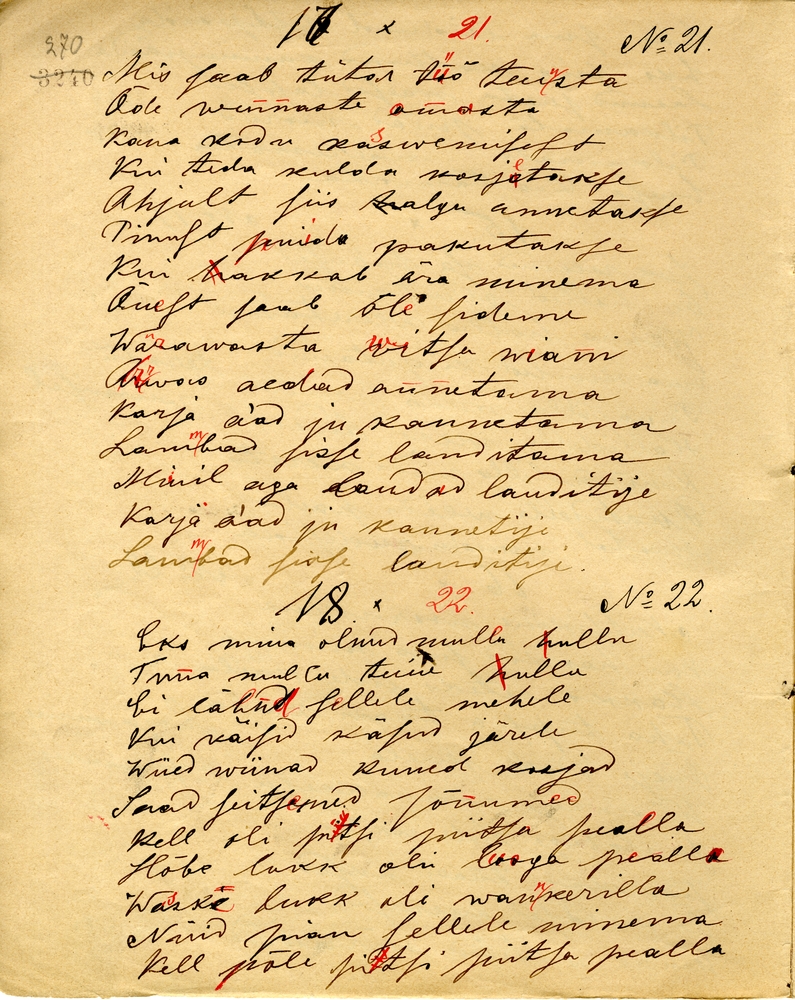 17 × 21. № 21.
270
3240
Mis saab tütar töö teusta
Öde wennaste omasta
Kana kodu kaswemisest
Kui teda kulda kosjetakse
Ahjult siis halgu annetakse
Pinust puida pakutakse
Kui hakkab ära minema
Õuest saab õle sideme
Wärawasta witsa wiami
aedad annetama
Karja äad ju kannetama
Lambad sisse landitama
Minil aga laudad lauditije
Karja äad ju kannetije
Lambad sisse landitije.
18 × 22. № 22.
Eks mina olnud mullu hullu
Tunna mullu teine hullu
Ei lähnd sellele mehele
Kui käisid käsud järele
Wiied wiinad kuued kosjad
Saad seitsemed sõnumed
Kell oli piitsi piitsa pealla
Hõbe lukk oli looga pealla
Waske lukk oli wankerilla
Nüüd pian sellele minema
Kell põle piitsi piitsa pealla